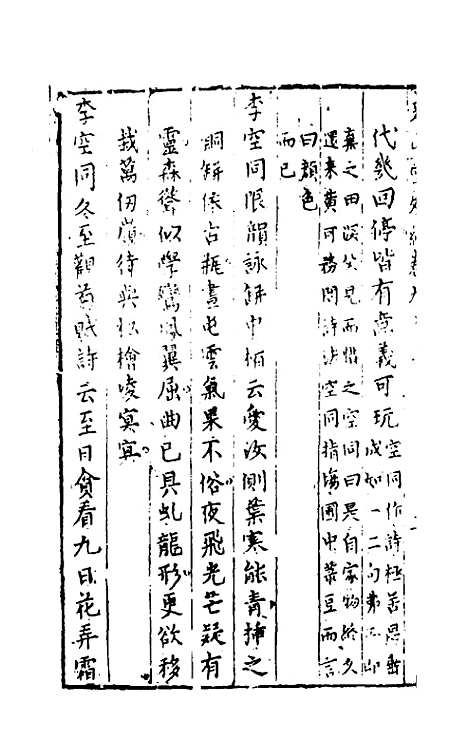 代幾回停皆有意義可玩空同作詩極苦思
成如一二句弗工即
棄之田㳙父見而惜之空同曰是自家物終久
還來黃可務問詩法空同指塲圃中菜豆而言
曰顏色
而已
李空同限韻詠缾中栢云愛汝側葉寒能青揷之
銅缾依古瓶晝屯雲氣果不俗夜飛光芒疑有
靈森聳似學鸞鳳翼屈曲已具虬龍形更欲移
栽萬仞崖待與松檜凌冥冥
李空同冬至觀菊賦詩云至日貪看九日花弄霜